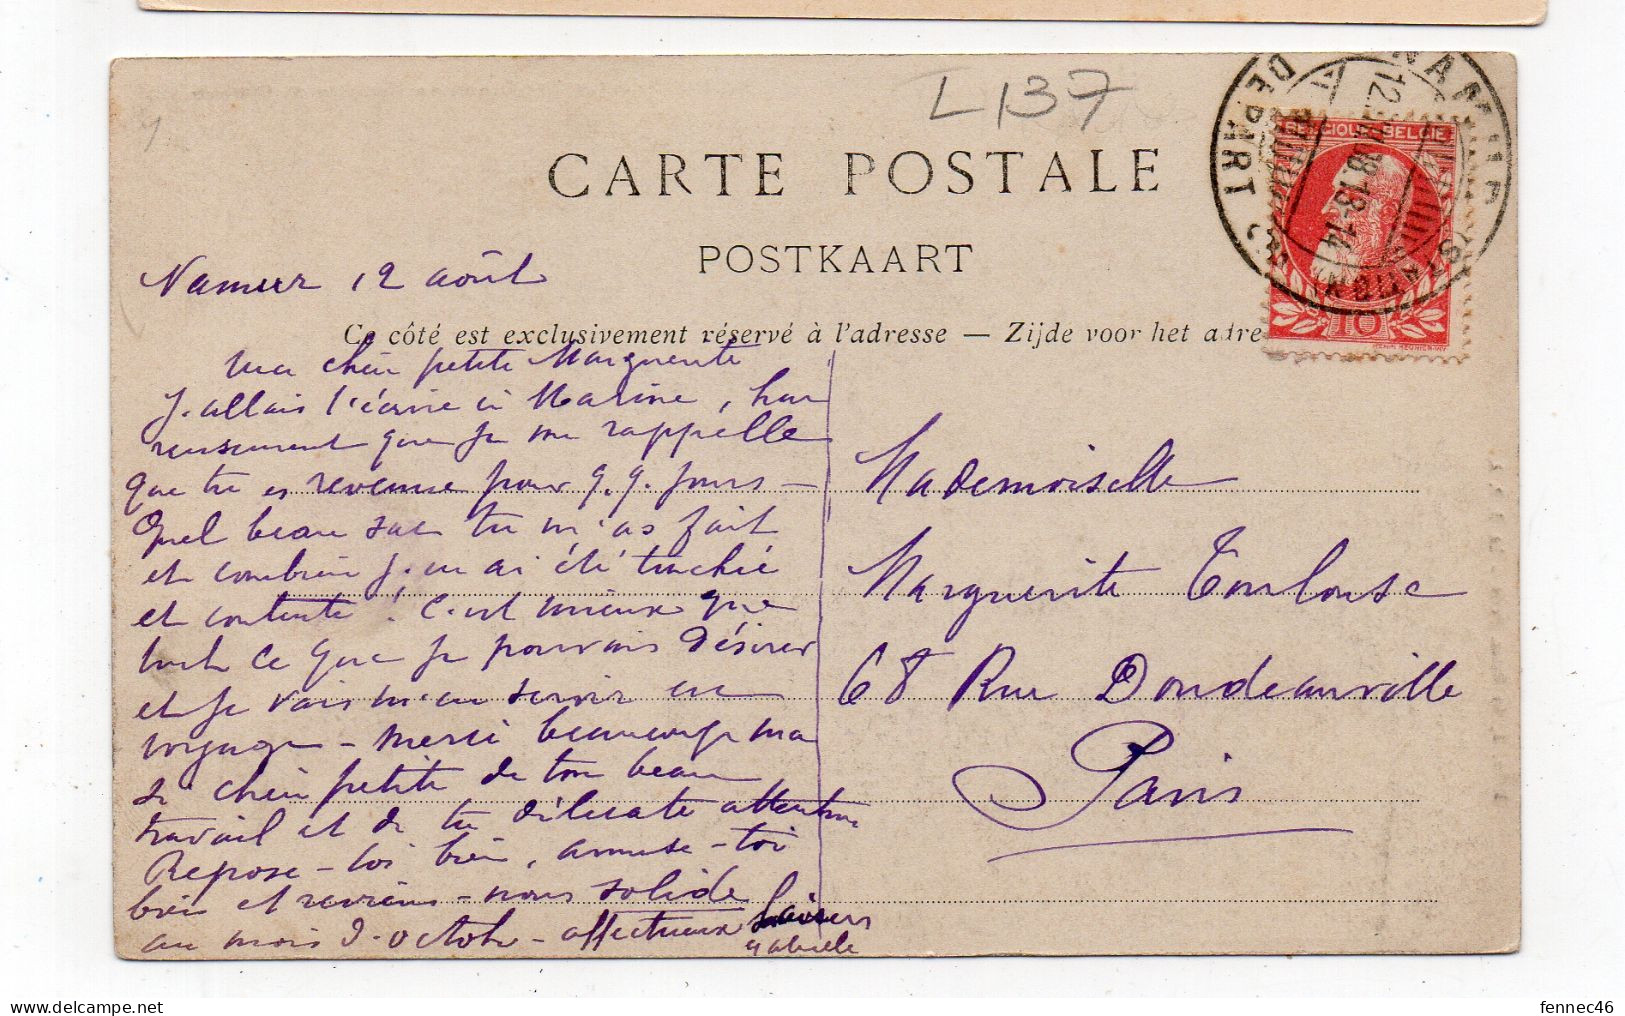 L 137
CARTE POSTALE
POSTKAART
NAMUR (STATION)
12 VIII 8.13-14
DEPART
BELGIQUE BELGIË
10
Namur 12 août
Ce côté est exclusivement réservé à l'adresse — Zijde voor het adre
Ma chèr petite Marguerite
J'allais t'écrire à Marine, heu
reusement que je me rappelle
que tu es revenue pour q.q. jours –
Quel beau sac tu m'as fait
et combien j'en ai été touchée
et contente ! C'est mieux que
tout ce que je pouvais désirer
et je vais m'en servir en
voyage – Merci beaucoup ma
si chèr petite de ton beau
travail et de ta délicate attention
Repose-toi bien, amuse-toi
bien et reviens-nous solide
au mois d'octobre – affectueux baisers
Gabrielle
Mademoiselle
Marguerite Toulouse
68 Rue Dondeauville
Paris
https://www.delcampe.net
fennec46